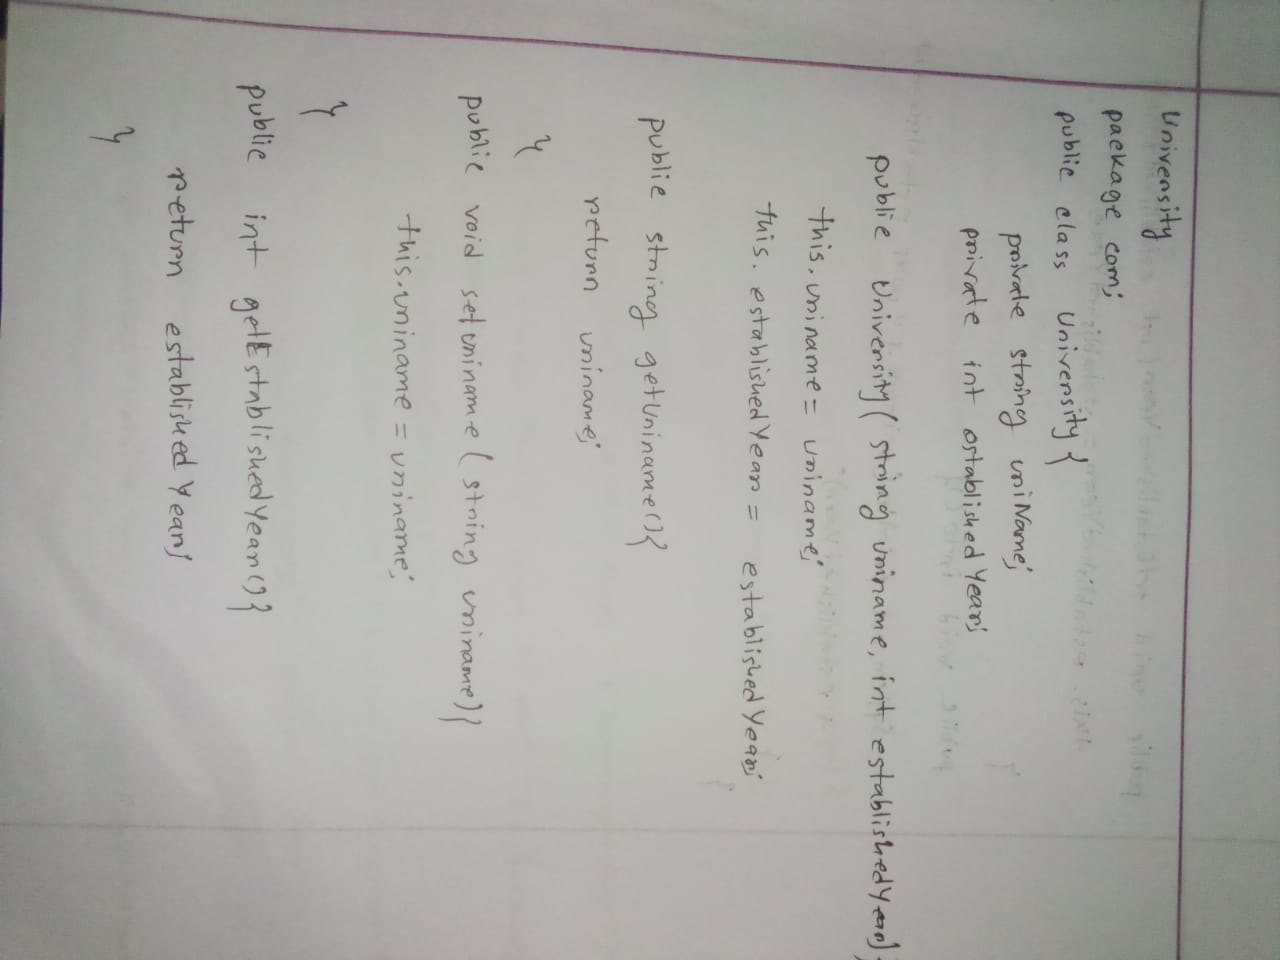 University
package com;
public class University {
private string uniName;
private int establishedYear;
public University( string uniname, int establishedYear)
this.uniname = uniname;
this.establishedYear = establishedYear;
public string getUniname(){
return uniname;
}
public void setuniname( string uniname){
this.uniname = uniname;
}
public int getEstablishedYear(){
return establishedYear;
}